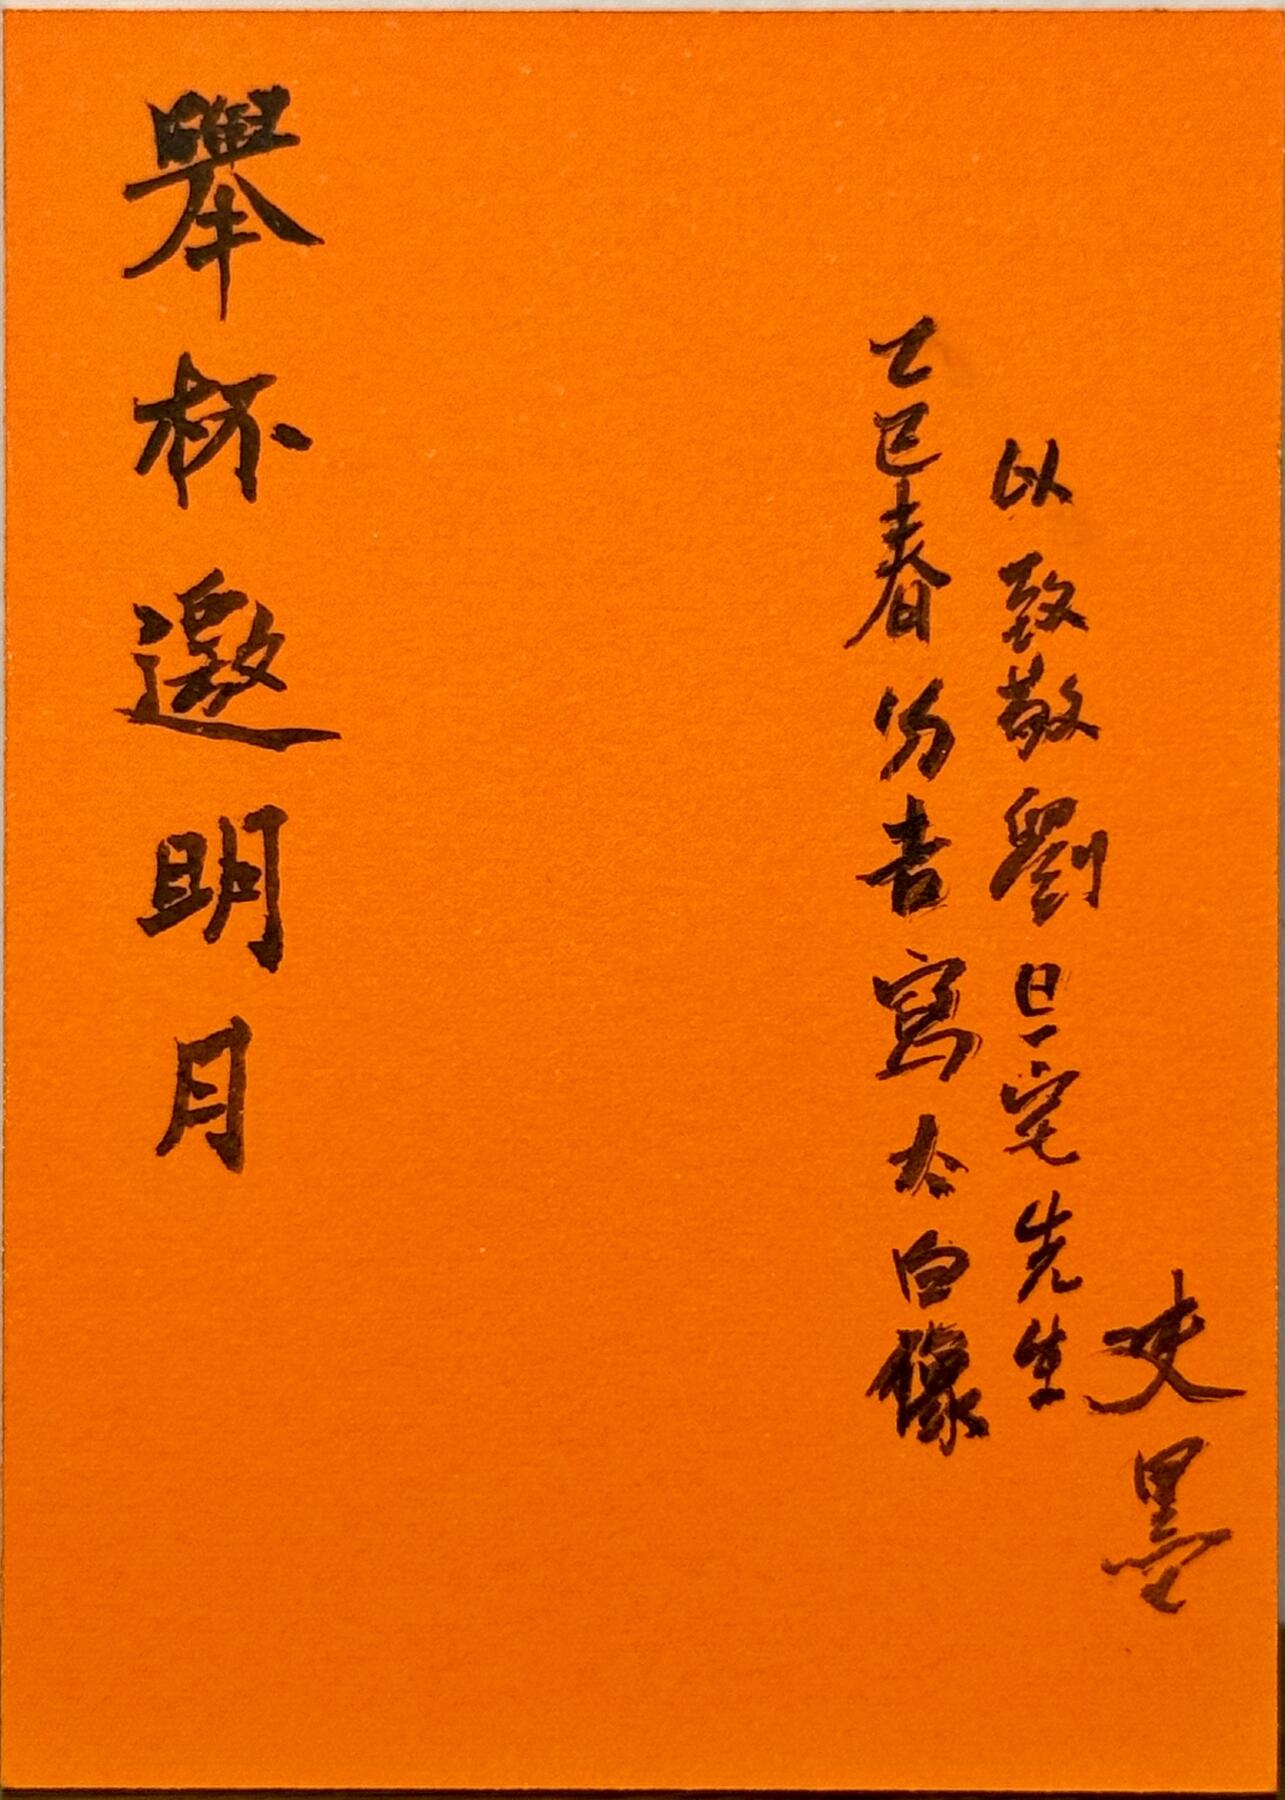 舉杯邀明月
乙巳春分吉寫太白像
以致敬劉旦宅先生
史墨